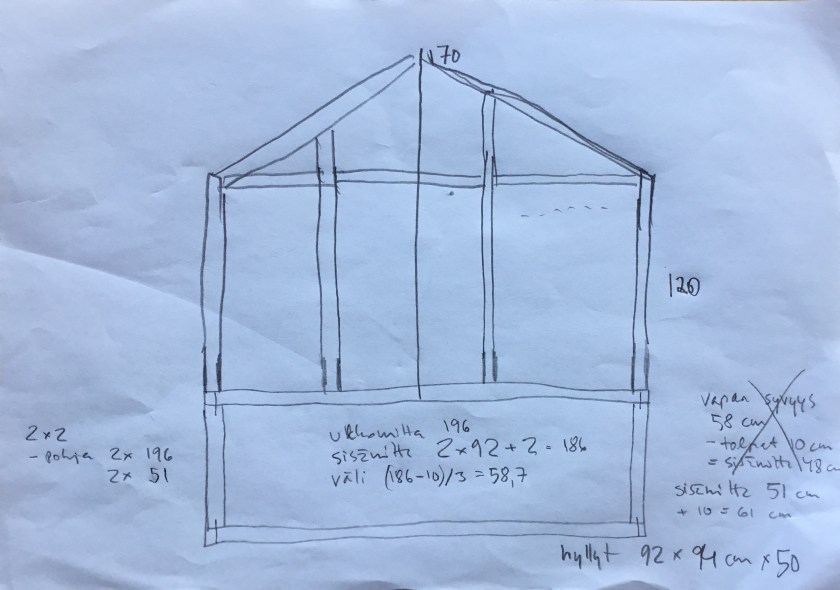 170
120
2x2
- pohja 2x 196
2x 51
ulkomitta 196
sisämitta 2x92+2 = 186
väli (186-10)/3 = 58,7
vapaa syvyys
58 cm
- tolpat 10 cm
= sisämitta 48 cm
sisämitta 51 cm
+ 10 = 61 cm
hyllyt 92 x 94 cm x 50